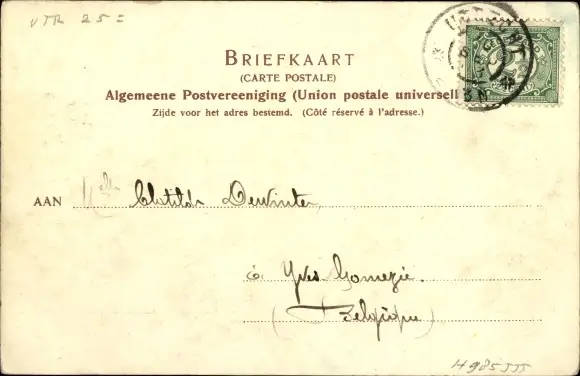 VTR 25=
UTRECHT
BRIEFKAART
(CARTE POSTALE)
Algemeene Postvereeniging (Union postale universell
Zijde voor het adres bestemd. (Côté réservé à l'adresse.)
AAN Melle Clotilde Dewinter
à Yves Gomezée.
(Belgique)
H985JJJ